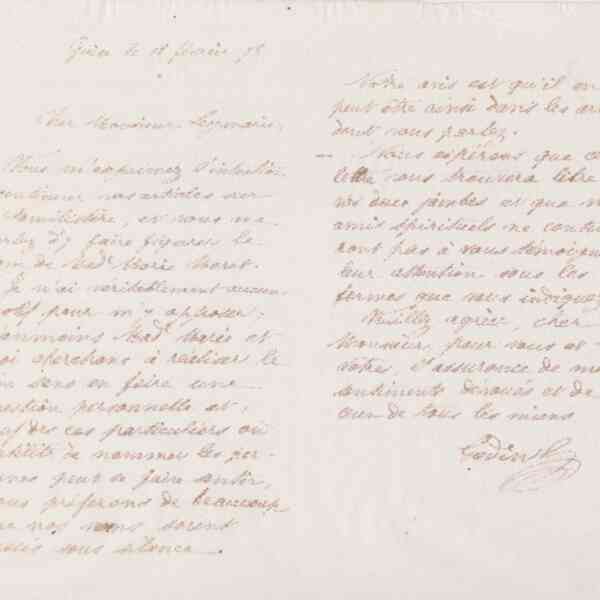 Guise le 18 février 75
Cher Monsieur Leymarie,
Vous m'exprimez l'intention
continuer nos articles sur
Familistère, et vous me
parlez d'y faire figurer le
nom de Mad. Marie Moret.
Je n'ai véritablement aucun
motif pour m'y opposer;
néanmoins Mad. Marie et
moi cherchons à réaliser le
sans en faire une
question personnelle et,
ces particuliers où
de nommer les per-
peut se faire sentir,
nous préférons de beaucoup
que nos noms soient
passés sous silence.
Notre avis est qu'il en
peut être ainsi dans les
dont vous parlez.
Nous espérons que
lettre vous trouvera libre
vos deux jambes et que
amis spirituels ne
ront pas à vous témoigner
leur attention sous les
formes que vous indiquez
Veuillez agréer, cher
Monsieur, pour vous et
vôtres, l'assurance de mes
sentiments dévoués et de
ceux de tous les miens
Godin